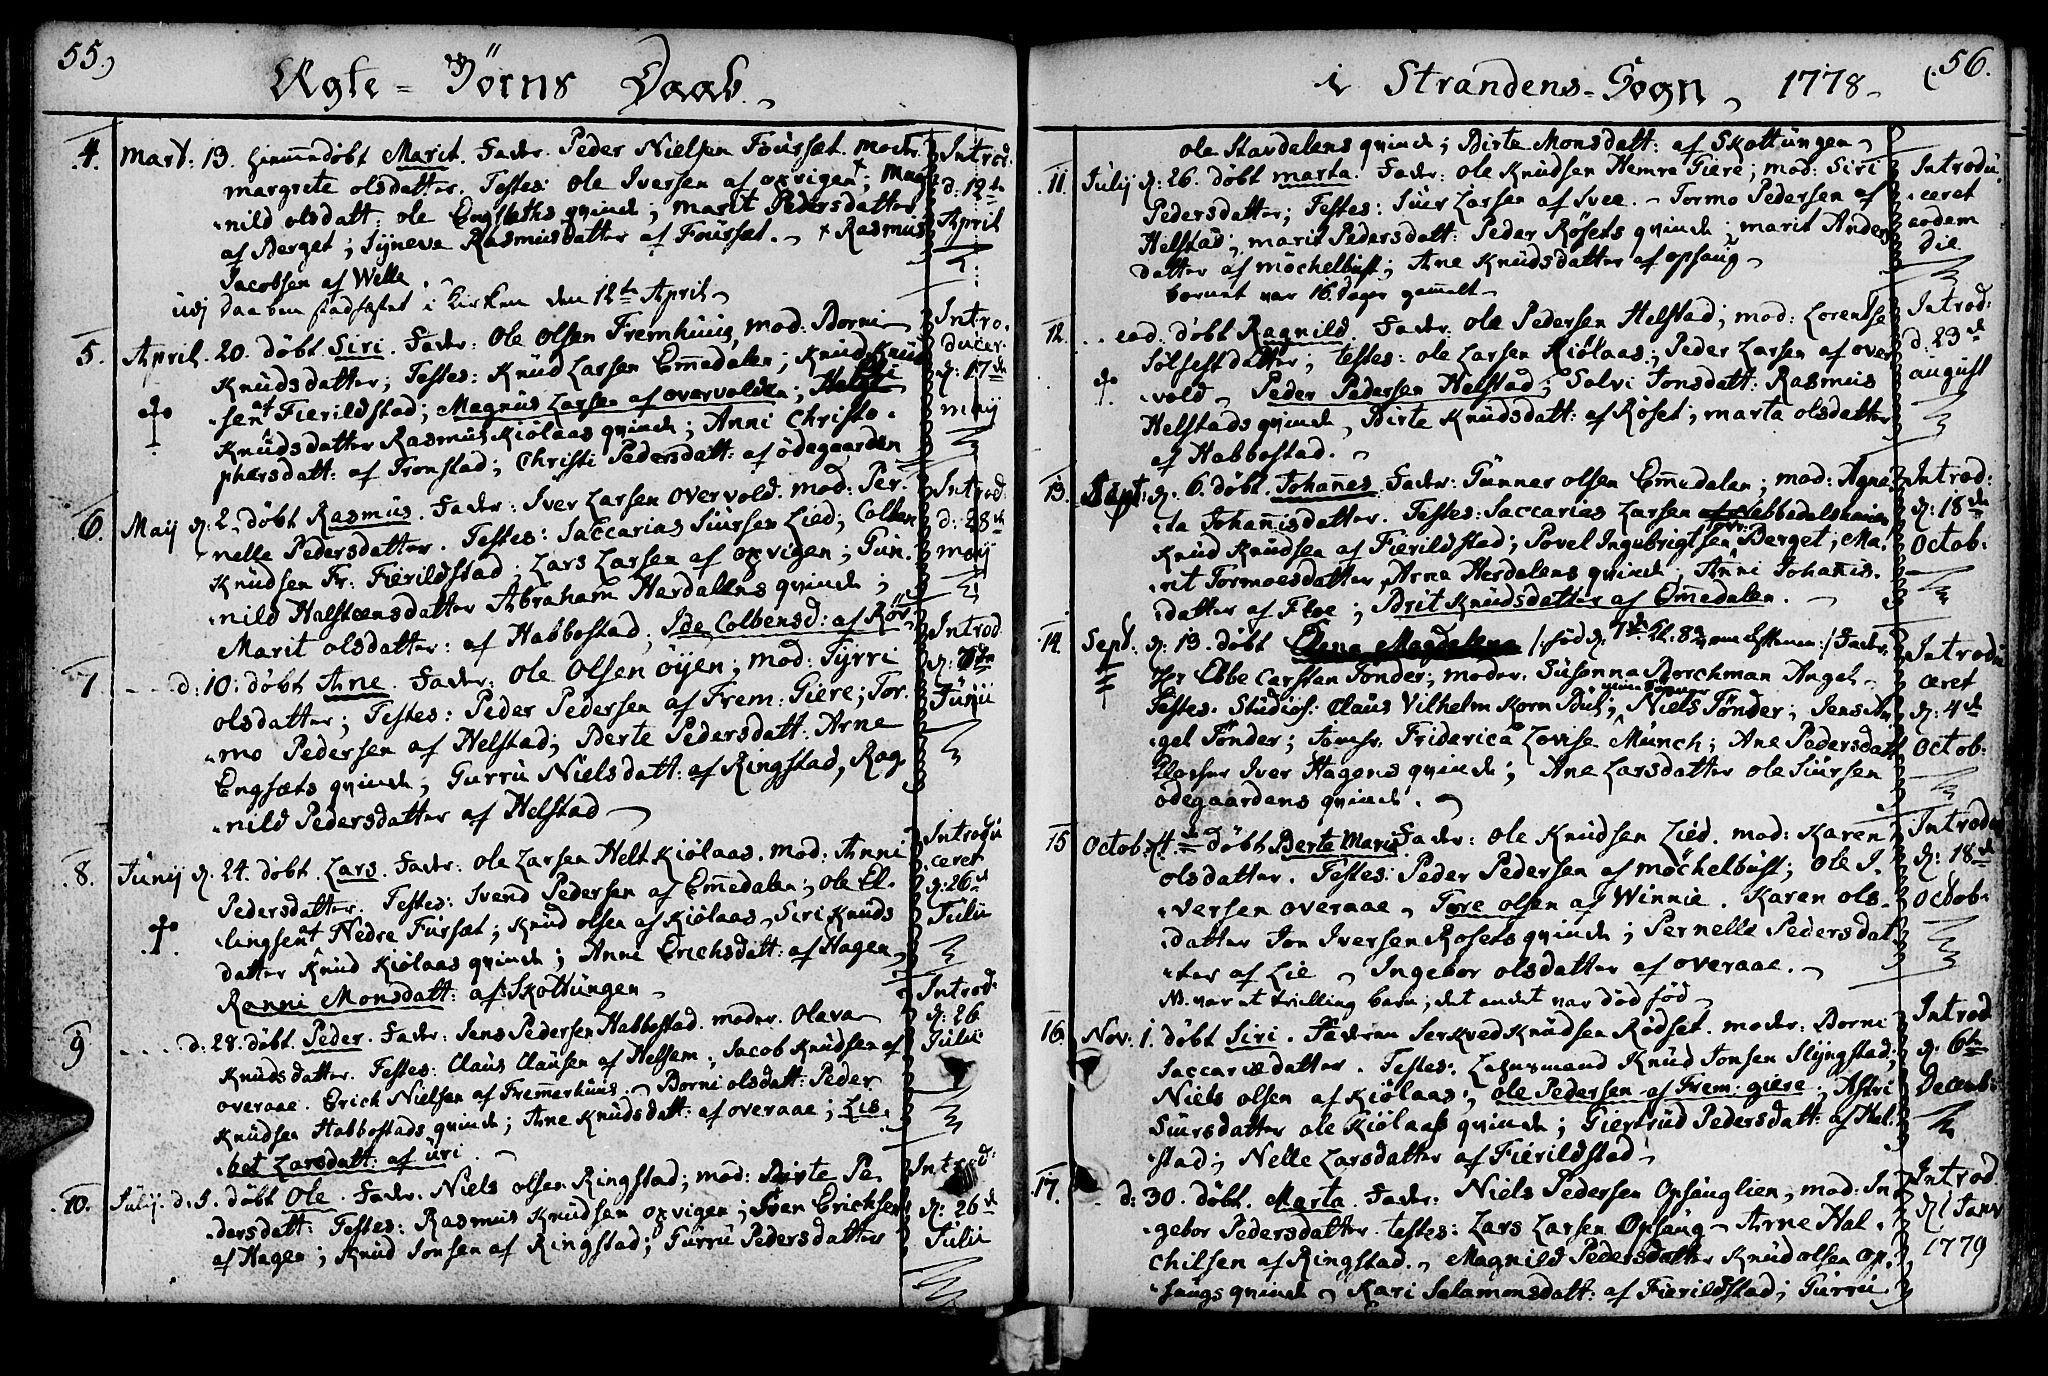 55.)
Ægte = Börns Daab.
4. Mart: 13. hiemmedøbt Marit. Fader. Peder Nielsen Foursæt. moder. Introd:
margrete olsdatter. Testes: Ole Iversen af oxvigen ; Mag d: 12te
nild olsdatt: ole Engsæths qvinde ; Marit Pedersdatter April
af Berget ; Synneva Rasmusdatter af Foursæt. x Rasmus
Jacobsen af Welle.
daaben stadfæstet i kirken den 12te April
5. April. 20. døbt Siri. Fader: Ole Olsen Fremhuus, mod: Borni Intro.
Knudsdatter; Testes: Knud Larsen Emedalen; Knud Knud ducer.
sen Fierildstad; Magnus Larsen af overvolden; d: 17de
Knudsdatter Rasmus Kiölaas qvinde; Anni Christo. maij
phersdatt: af Tronstad; Christi Pedersdatt: af ödegaarden
6. Maij d: 2. døbt Rasmus. Fader: Iver Larsen overvold. mod: Per. Introd.
nelle Pedersdatter. Testes: Saccarias Siursen Lied; Colben d: 28de
Knudsen Fr: Fierildstad; Lars Larsen af oxvigen; Gun. maij
nild Halsteensdatter Abraham Herdalens qvinde;
Marit olsdatter: af Habbostad; Ide Colbensd: af Rör
7. - - d: 10: døbt Ane. Fader: Ole Olsen öyen; mod: Sÿrri Introd
olsdatter; Testes: Peder Pedersen af Frem: Giere; Tor. Junii
mo Pedersen af Helstad; Berte Pedersdatt: Arne
Engsæts qvinde; Gurru Nielsdatt: af Ringstad, Rag.
nild Pedersdatter af Helstad
8. Junij d. 24. döbt. Lars. Fader: ole Larsen Helt Kiölaas. mod: Anni Introdu
Pedersdatter. Testes: Svend Pedersen af Emedalen; ole El. ceret
lingsen Nedre Fursæt; Knud olsen af Kiölaas, Siri Knuds d: 26de
datter Knud Kiölaas qvinde; Anne Erichsdatt: af Hagen, Julii
Ranni Monsdatt: af Skottungen
9 - - - d: 28. døbt. Peder. Fader: Jens Pedersen Habbostad. moder. Olava Introd.
Knudsdatter. Testes: Claus Clausen af Helsem; Jacob Knudsen af d: 26
overaae. Erich Nielsen af Fremmerhuus. Borni olsdatt: Peder Julii
Knudsen Habbostads qvinde; Ane Knudsdatt: af overaae; Lis.
bet Larsdatt: af üri.
10. Julij. d: 5. døbt Ole. Fader. Niels olsen Ringstad; mod: Birte Pe Introd:
dersdatt: Testes: Rasmus Knudsen oxvigen; Iver Erichsen d: 26de
af Hagen; Knud Jonsen af Ringstad; Gurru Pedersdatter Julii
i Strandens-Sogn, 1778. (56.
ole Stavdalens qvinde; Birte Monsdatt: af Skottungen
11. Julij d: 26. döbt marta. Fader: ole Knudsen Hemre Giere; mod: Siri Introdu.
Pedersdatter; Testes: Siur Larsen af Svee. - Tormo Pedersen af ceret
Helstad; marit Pedersdatt: Peder Rösets qvinde; marit Anders eodem
datter af möchelbust; Ane Knudsdatter af opsaug die
barnet var 16. dager gammelt
12. .. eod. döbt Ragnild. Fader. ole Pedersen Helstad; mod: Lorentse Introd:
Sölfestdatter; testes: ole Larsen Kiölaas; Peder Larsen af over d: 23de
vold. Peder Pedersen Helstad; Solvi Jonsdatt: Rasmus august
Helstads qvinde, Birte Knudsdatt: af Röset; marta olsdatter
af Habbostad.
13. Sept: d. 6. döbt. Johannes. Fader: Gunner olsen Emedalen; mod: Agne. Introd:
ta Johannisdatter. Testes: Saccarias Larsen d: 18de
Knud Knudsen af Fierildstad; Povel Ingebrigtsen Berget; Ma. Octob:
rit Tormoesdatter, Arne Herdalens qvinde. Anni Johannis.
datter af Floe; Brit Knudsdatter af Emedalen.
14. Sept. d. 13. döbt Elena Magdalena Fader. Introdu
Hr Ebbe Carstan Tonder; moder. Susanna Borchman Angel ceret
Testes. Studios: Claus Vilhelm Korn; Niels Tönder; d: 4de
gel Tonder; Jomfr. Friderica Lovise Münch; Ane Pedersdatt Octob:
Iver Hagens qvinde; Ane Larsdatter ole Siursen
ödegaardens qvinde.
15 Octob: 4. de döbt Berte Maria Fader: Ole Knudsen Lied. mod: Karen Introdu
olsdatter. Testes: Peder Pedersen af möchelbust; Ole I. d: 18de
versen overaae, Tore olsen af Winnie. Karen ols. Octob:
datter Jon Iversen Rosets qvinde; Pernelle Pedersdat
ter af Lie, Ingebor olsdatter af overaae.
NB. var et tvilling barn; det andet var död föd
16. Nov: 1. döbt Siri. Faderen Serkved Knudsen Rödset. moder: Borni Introd
Saccariæ datter. Testes: Lehnsmand Knud Jonsen Slyngstad; d: 6te
Niels olsen af Kiölaas; ole Pedersen af Frem: giere; Astri Decemb:
Siursdatter ole Kiölaas qvinde; Giertrud Pedersdatt: af Hel.
stad; Nelle Larsdatter af Fierildstad
17. d: 30. döbt. Marta. Fader: Niels Pedersen Opsauglien, mod: In Introd
gebor Pedersdatter. testes: Lars Larsen Opsaug Arne Hal. d: 1 Janv
chilsen af Ringstad. Magnild Pedersdatter Knud olsen op. 1779
saugs qvinde, Kari Salamonsdatt: af Fierildstad; Gurru